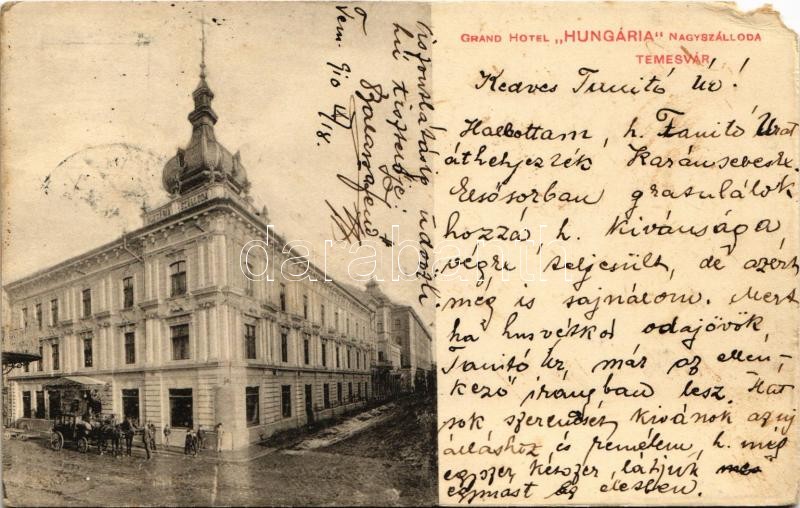 GRAND HOTEL „HUNGÁRIA" NAGYSZÁLLODA
TEMESVÁR
Kedves Tanító Úr!
Hallottam, h. Tanító Urat
áthelyezték Karánsebesre.
Elsősorban gratulálok
hozzá h. kivánsága
végre teljesült, de azért
még is sajnálom. Mert
ha husvétkor odajövök,
Tanitó Úr, már az ellen-
kező irányban lesz. Hát
sok szerencsét kivánok az uj
álláshoz és remélem, h. még
egyszer, kétszer, látjuk
egymást az életben.
Viszontlátásig üdvözli
hű tisztelője:
T
Tem. 910
darabanth